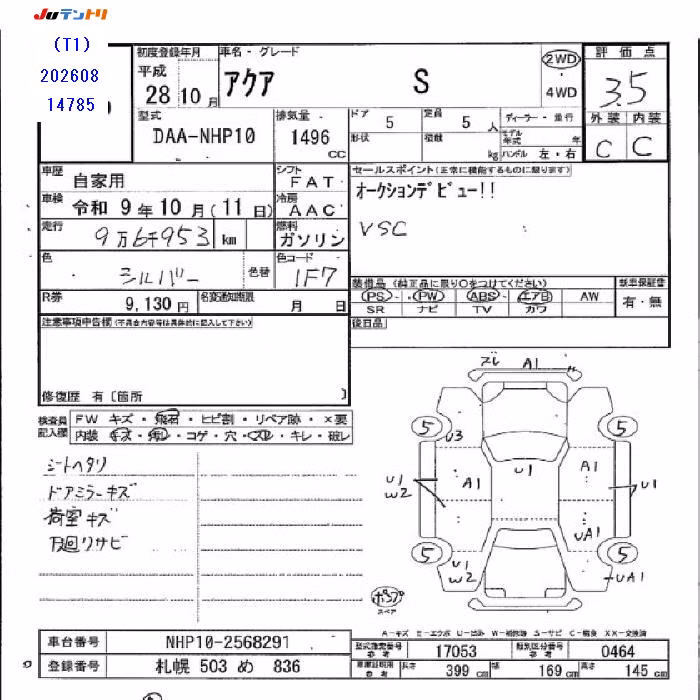 JUテントリ
(T1)
202608
14785
初度登録年月
平成
28 10 月
車名・グレード
アクア S
2WD
・
4WD
評価点
3.5
外装 内装
C C
型式
DAA-NHP10
排気量
1496 CC
ドア 5
定員 5 人
形状
積載 kg
ディーラー・並行
モデル年式 年
ハンドル 左・右
車歴 自家用
シフト FAT
車検 令和 9 年 10 月 (11 日)
冷房 AAC
走行 9万6千953 km
燃料 ガソリン
色 シルバー
色替
色コード 1F7
R券 9,130 円
名変通知期限 月 日
セールスポイント(正常に機能するものに限ります)
オークションデビュー!!
VSC
装備品(純正品に限り○をつけてください)
PS・PW ABS エアB AW
SR ナビ TV カワ
新車保証書
有・無
後日品
注意事項申告欄(不具合内容等は具体的に記入して下さい)
修復歴 有〔箇所 〕
検査員記入欄
FW キズ・飛石・ヒビ割・リペア跡・×要
内装 キズ・汚レ・コゲ・穴・スレ・キレ・破レ
シートヘタリ
ドアミラーキズ
荷室キズ
下回りサビ
ズレ A1
5 5
U3
U1
W2
A1
U1
A1
U1
UA1
5 5
U1
W2
UA1
スペア
A-キズ E-エクボ U-凹み W-補修跡 S-サビ C-腐食 XX-交換済
車台番号 NHP10-2568291
型式指定番号 参考 17053
類別区分番号 参考 0464
登録番号 札幌 503 め 836
車庫証明用 参考
長さ 399 cm
幅 169 cm
高さ 145 cm